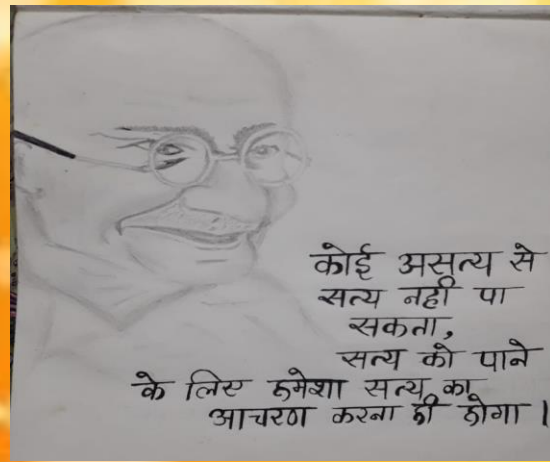 कोई असत्य से
सत्य नहीं पा
सकता,
सत्य को पाने
के लिए हमेशा सत्य का
आचरण करना ही होगा।